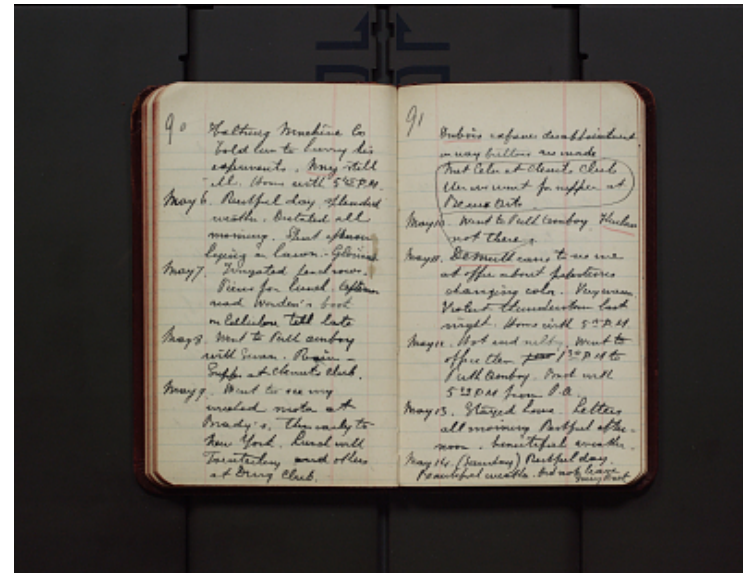 90
Machine Co
told him to hurry his
experiments. Amy still
ill. Home with 5 P.M.
May 6. Restful day, splendid
weather. Dictated all
morning. Spent afternoon
lying on lawn. Glorious
May 7. Irrigated
Piems for lunch. Afternoon
read Worden's book
on Cellulose till late
May 8. Went to Perth Amboy
with Swan.
Supper at Chemists Club.
May 9. Went to see my
wrecked motor at
Brady's. Then early to
New York. Lunch with
and others
at Drug Club.
91
Dubois disappointment
in way buttons are made
Met Celin at Chemists Club
We went for supper at
Beaux Arts.
May 10. Went to Perth Amboy.
not there.
May 11. Demuth came to see me
at office about
changing color. Very warm
Violent thunderstorm last
night. Home with 5 P.M.
May 12. Hot and Went to
office then 1 P.M. to
Perth Amboy. Back with
5 P.M. from P.A.
May 13. Stayed home. Letters
all morning Restful after-
noon. beautiful weather.
May 14. (Sunday) Restful day.
Beautiful weather. Did not leave